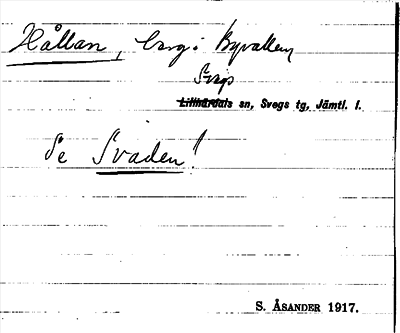 Hållan, berg i Byvallen,
Svegs
Lillhärdals sn, Svegs tg, Jämtl. l.
Se Svaden!
S. ÅSANDER 1917.